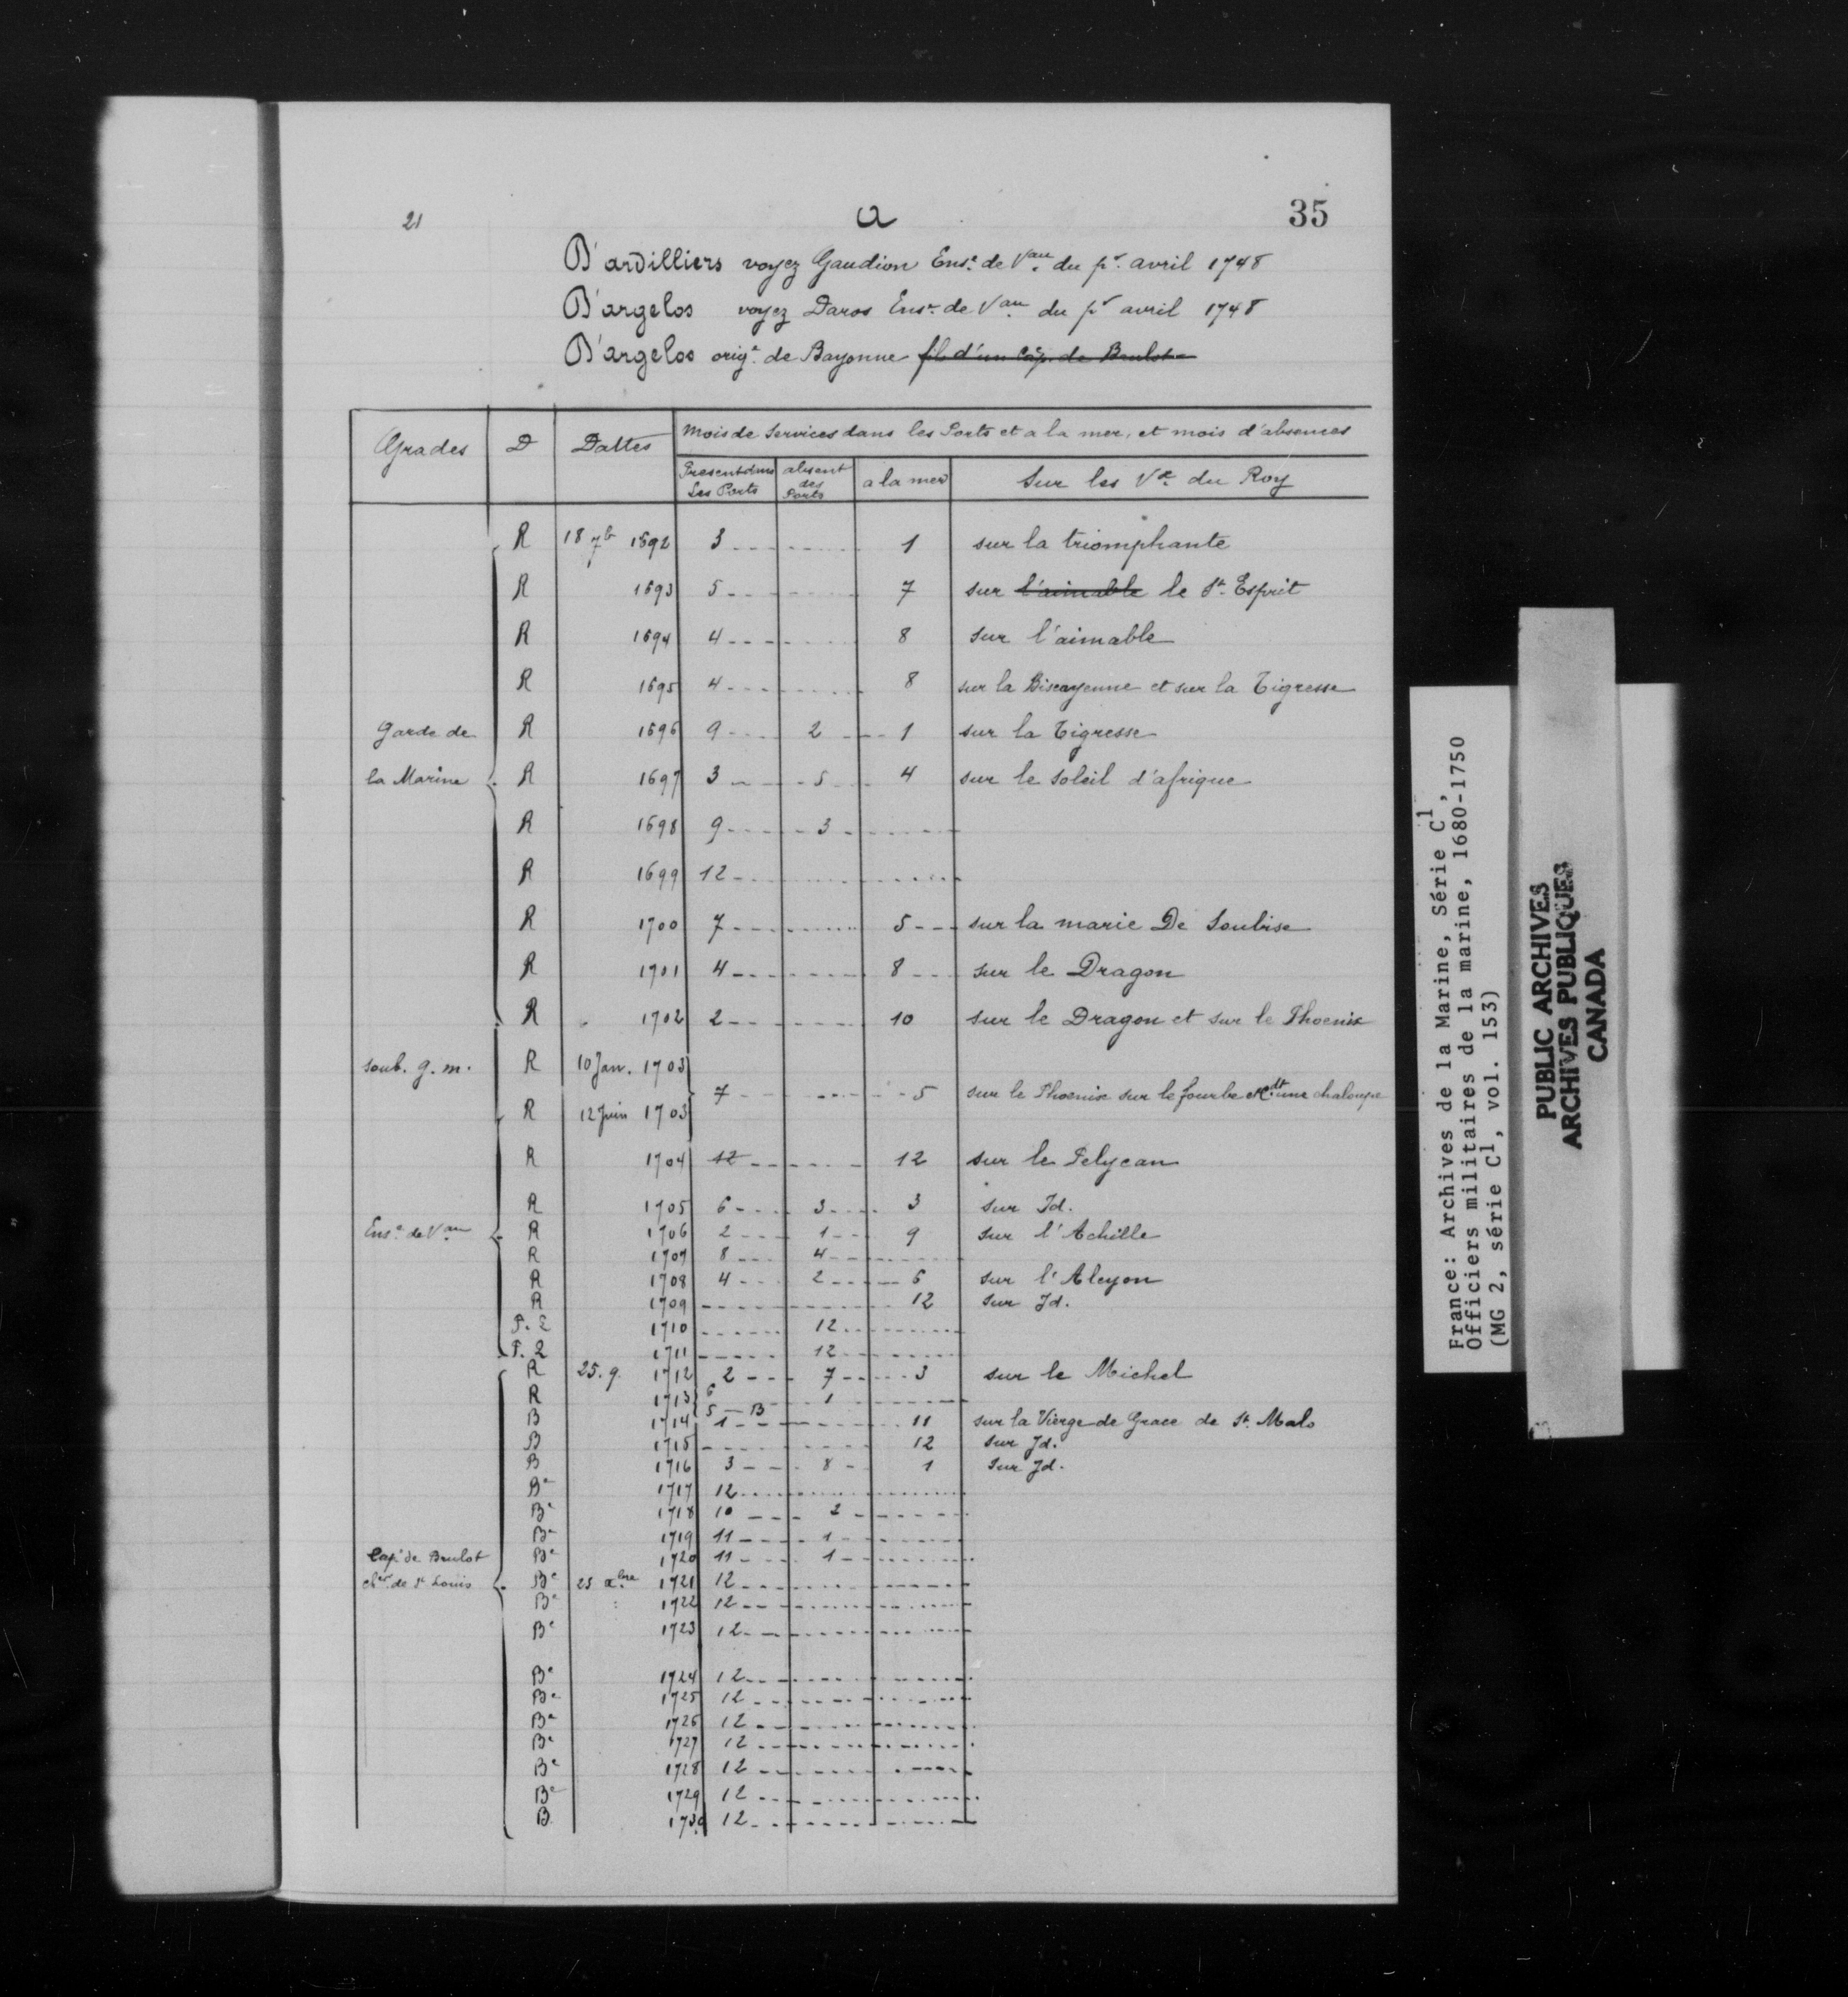 21 a 35
D'ardilliers voyez Gaudion Ens.e de Vau. du pr. avril 1748
D'argelos voyez Daros Ens.e de Vau. du pr avril 1748
D'argelos orig.e de Bayonne fils d'un Cap. de Brulot
Grades D Dattes Mois de Services dans les Ports et a la mer, et mois d'absences
Present dans Les Ports absent des Ports a la mer Sur les Vx. du Roy
R 18 7b 1692 3 1 sur la triomphante
R 1693 5 7 sur l'aimable le St. Esprit
R 1694 4 8 sur l'aimable
R 1695 4 8 sur la Biscayenne et sur la Tigresse
Garde de R 1696 9 2 1 sur la Tigresse
la Marine R 1697 3 5 4 sur le soleil d'afrique
R 1698 9 3
R 1699 12
R 1700 7 5 sur la marie De Soubise
R 1701 4 8 sur le Dragon
R 1702 2 10 sur le Dragon et sur le Phoenix
soub. g. m. R 10 Jan. 1703
7 5 sur le Phoenix sur le fourbe une chaloupe
R 12 Juin 1703
R 1704 12 12 sur le Pelycan
R 1705 6 3 3 sur Id.
Ens.e de Vau R 1706 2 1 9 sur l'Achille
R 1707 8 4
R 1708 4 2 6 sur l'Alcyon
R 1709 12 sur Id.
P. 2 1710 12
P. 2 1711 12
R 25. 9. 1712 2 7 3 sur le Michel
R 1713 6 1
5 B
B 1714 1 11 sur la Vierge de Grace de St. Malo
B 1715 12 sur Id.
B 1716 3 8 1 Sur Id.
Be 1717 12
Be 1718 10 2
Be 1719 11 1
Cap.e de Brulot Be 1720 11 1
cher. de St Louis Be 25 xbre 1721 12
Be 1722 12
Be 1723 12
Be 1724 12
Be 1725 12
Be 1726 12
Be 1727 12
Be 1728 12
Be 1729 12
B 1730 12
France: Archives de la Marine, Série C1,
Officiers militaires de la marine, 1680-1750
(MG 2, série C1, vol. 153)
PUBLIC ARCHIVES
ARCHIVES PUBLIQUES
CANADA